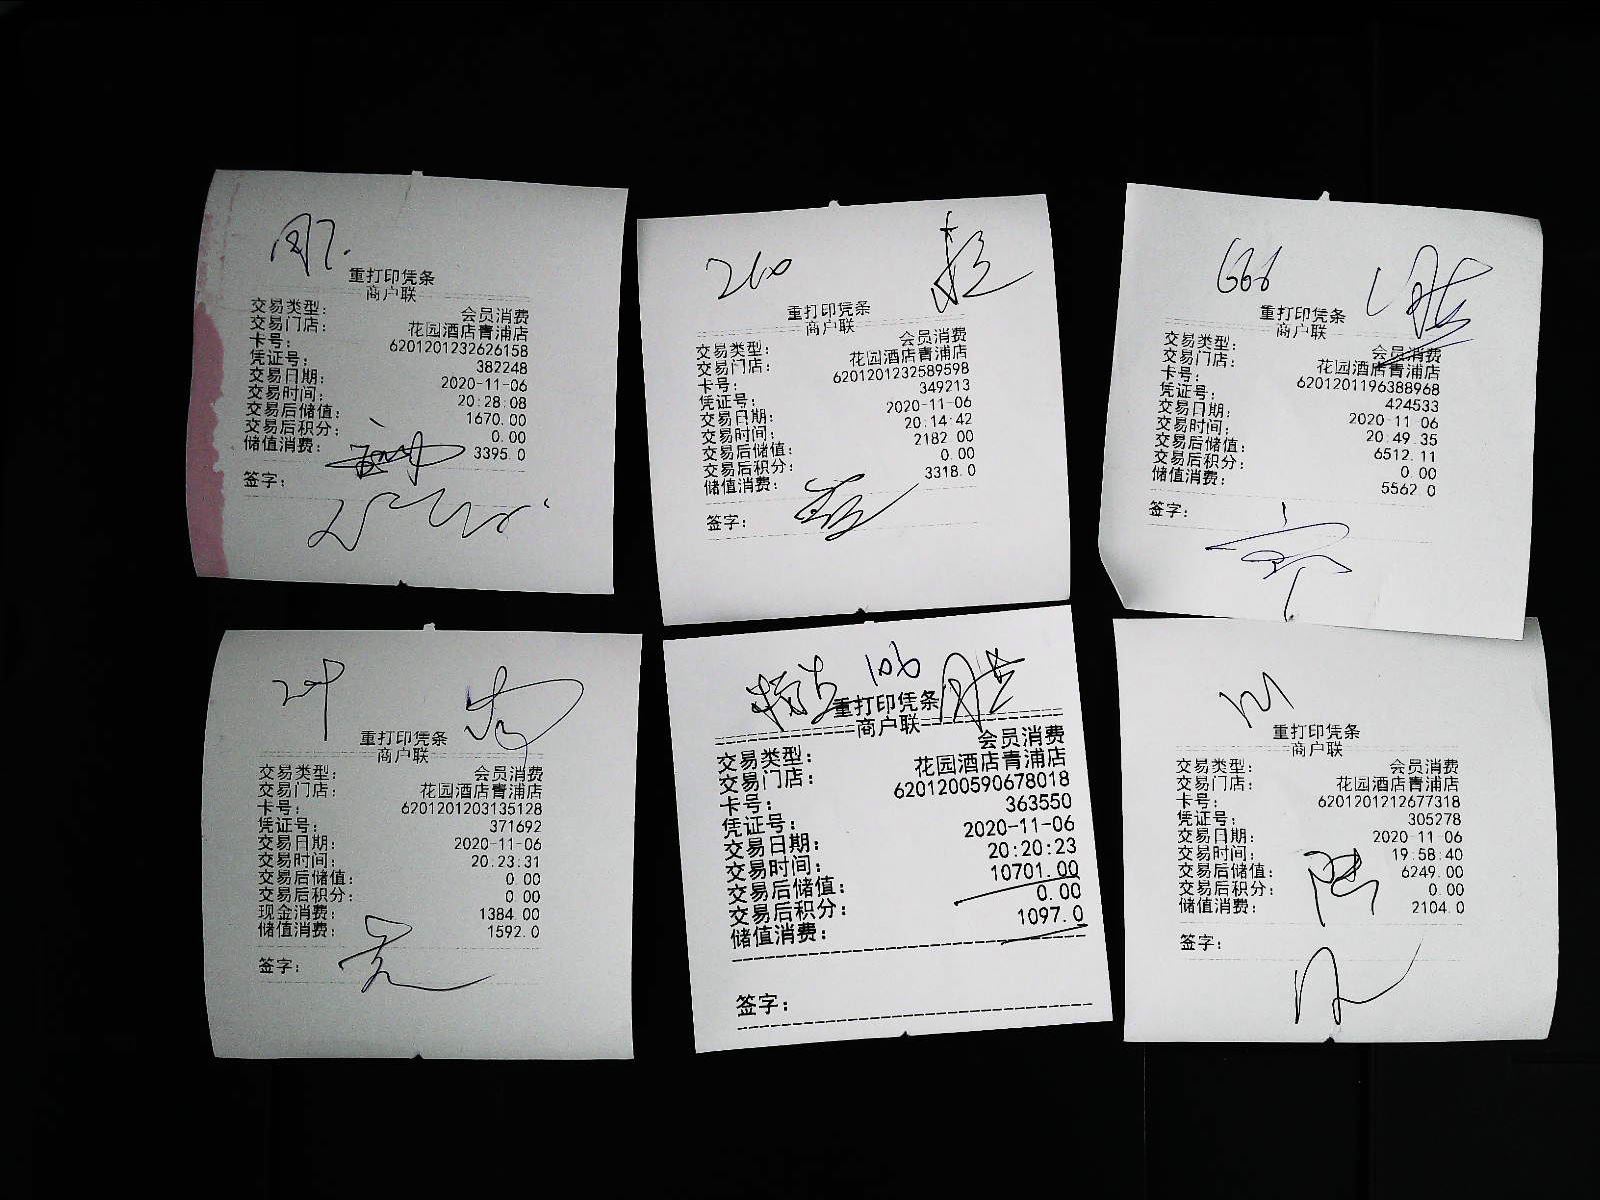 重打印凭条
商户联
交易类型: 会员消费
交易门店: 花园酒店青浦店
卡号: 6201201232626158
凭证号: 382248
交易日期: 2020-11-06
交易时间: 20:28:08
交易后储值: 1670.00
交易后积分: 0.00
储值消费: 3395.0
签字:
260
重打印凭条
商户联
交易类型: 会员消费
交易门店: 花园酒店青浦店
卡号: 6201201232589598
凭证号: 349213
交易日期: 2020-11-06
交易时间: 20:14:42
交易后储值: 2182.00
交易后积分: 0.00
储值消费: 3318.0
签字:
666
重打印凭条
商户联
交易类型: 会员消费
交易门店: 花园酒店青浦店
卡号: 6201201196388968
凭证号: 424533
交易日期: 2020-11-06
交易时间: 20:49:35
交易后储值: 6512.11
交易后积分: 0.00
储值消费: 5562.0
签字:
重打印凭条
商户联
交易类型: 会员消费
交易门店: 花园酒店青浦店
卡号: 6201201203135128
凭证号: 371692
交易日期: 2020-11-06
交易时间: 20:23:31
交易后储值: 0.00
交易后积分: 0.00
现金消费: 1384.00
储值消费: 1592.0
签字:
106
重打印凭条
商户联
交易类型: 会员消费
交易门店: 花园酒店青浦店
卡号: 6201200590678018
凭证号: 363550
交易日期: 2020-11-06
交易时间: 20:20:23
交易后储值: 10701.00
交易后积分: 0.00
储值消费: 1097.0
签字:
重打印凭条
商户联
交易类型: 会员消费
交易门店: 花园酒店青浦店
卡号: 6201201212677318
凭证号: 305278
交易日期: 2020-11-06
交易时间: 19:58:40
交易后储值: 6249.00
交易后积分: 0.00
储值消费: 2104.0
签字: